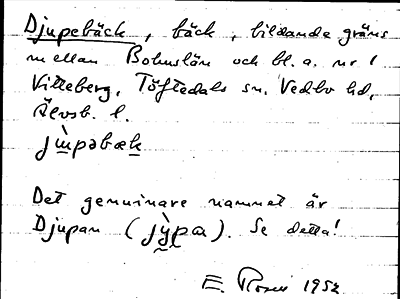 Djupebäck, bäck, bildande gräns
mellan Bohuslän och bl. a. nr 1
Vitleberg, Töftedals sn, Vedbo hd,
Älvsb. l.
jùpəbæk
Det genuinare namnet är
Djupan (jỳpa). Se detta!
E. Rosén 1952